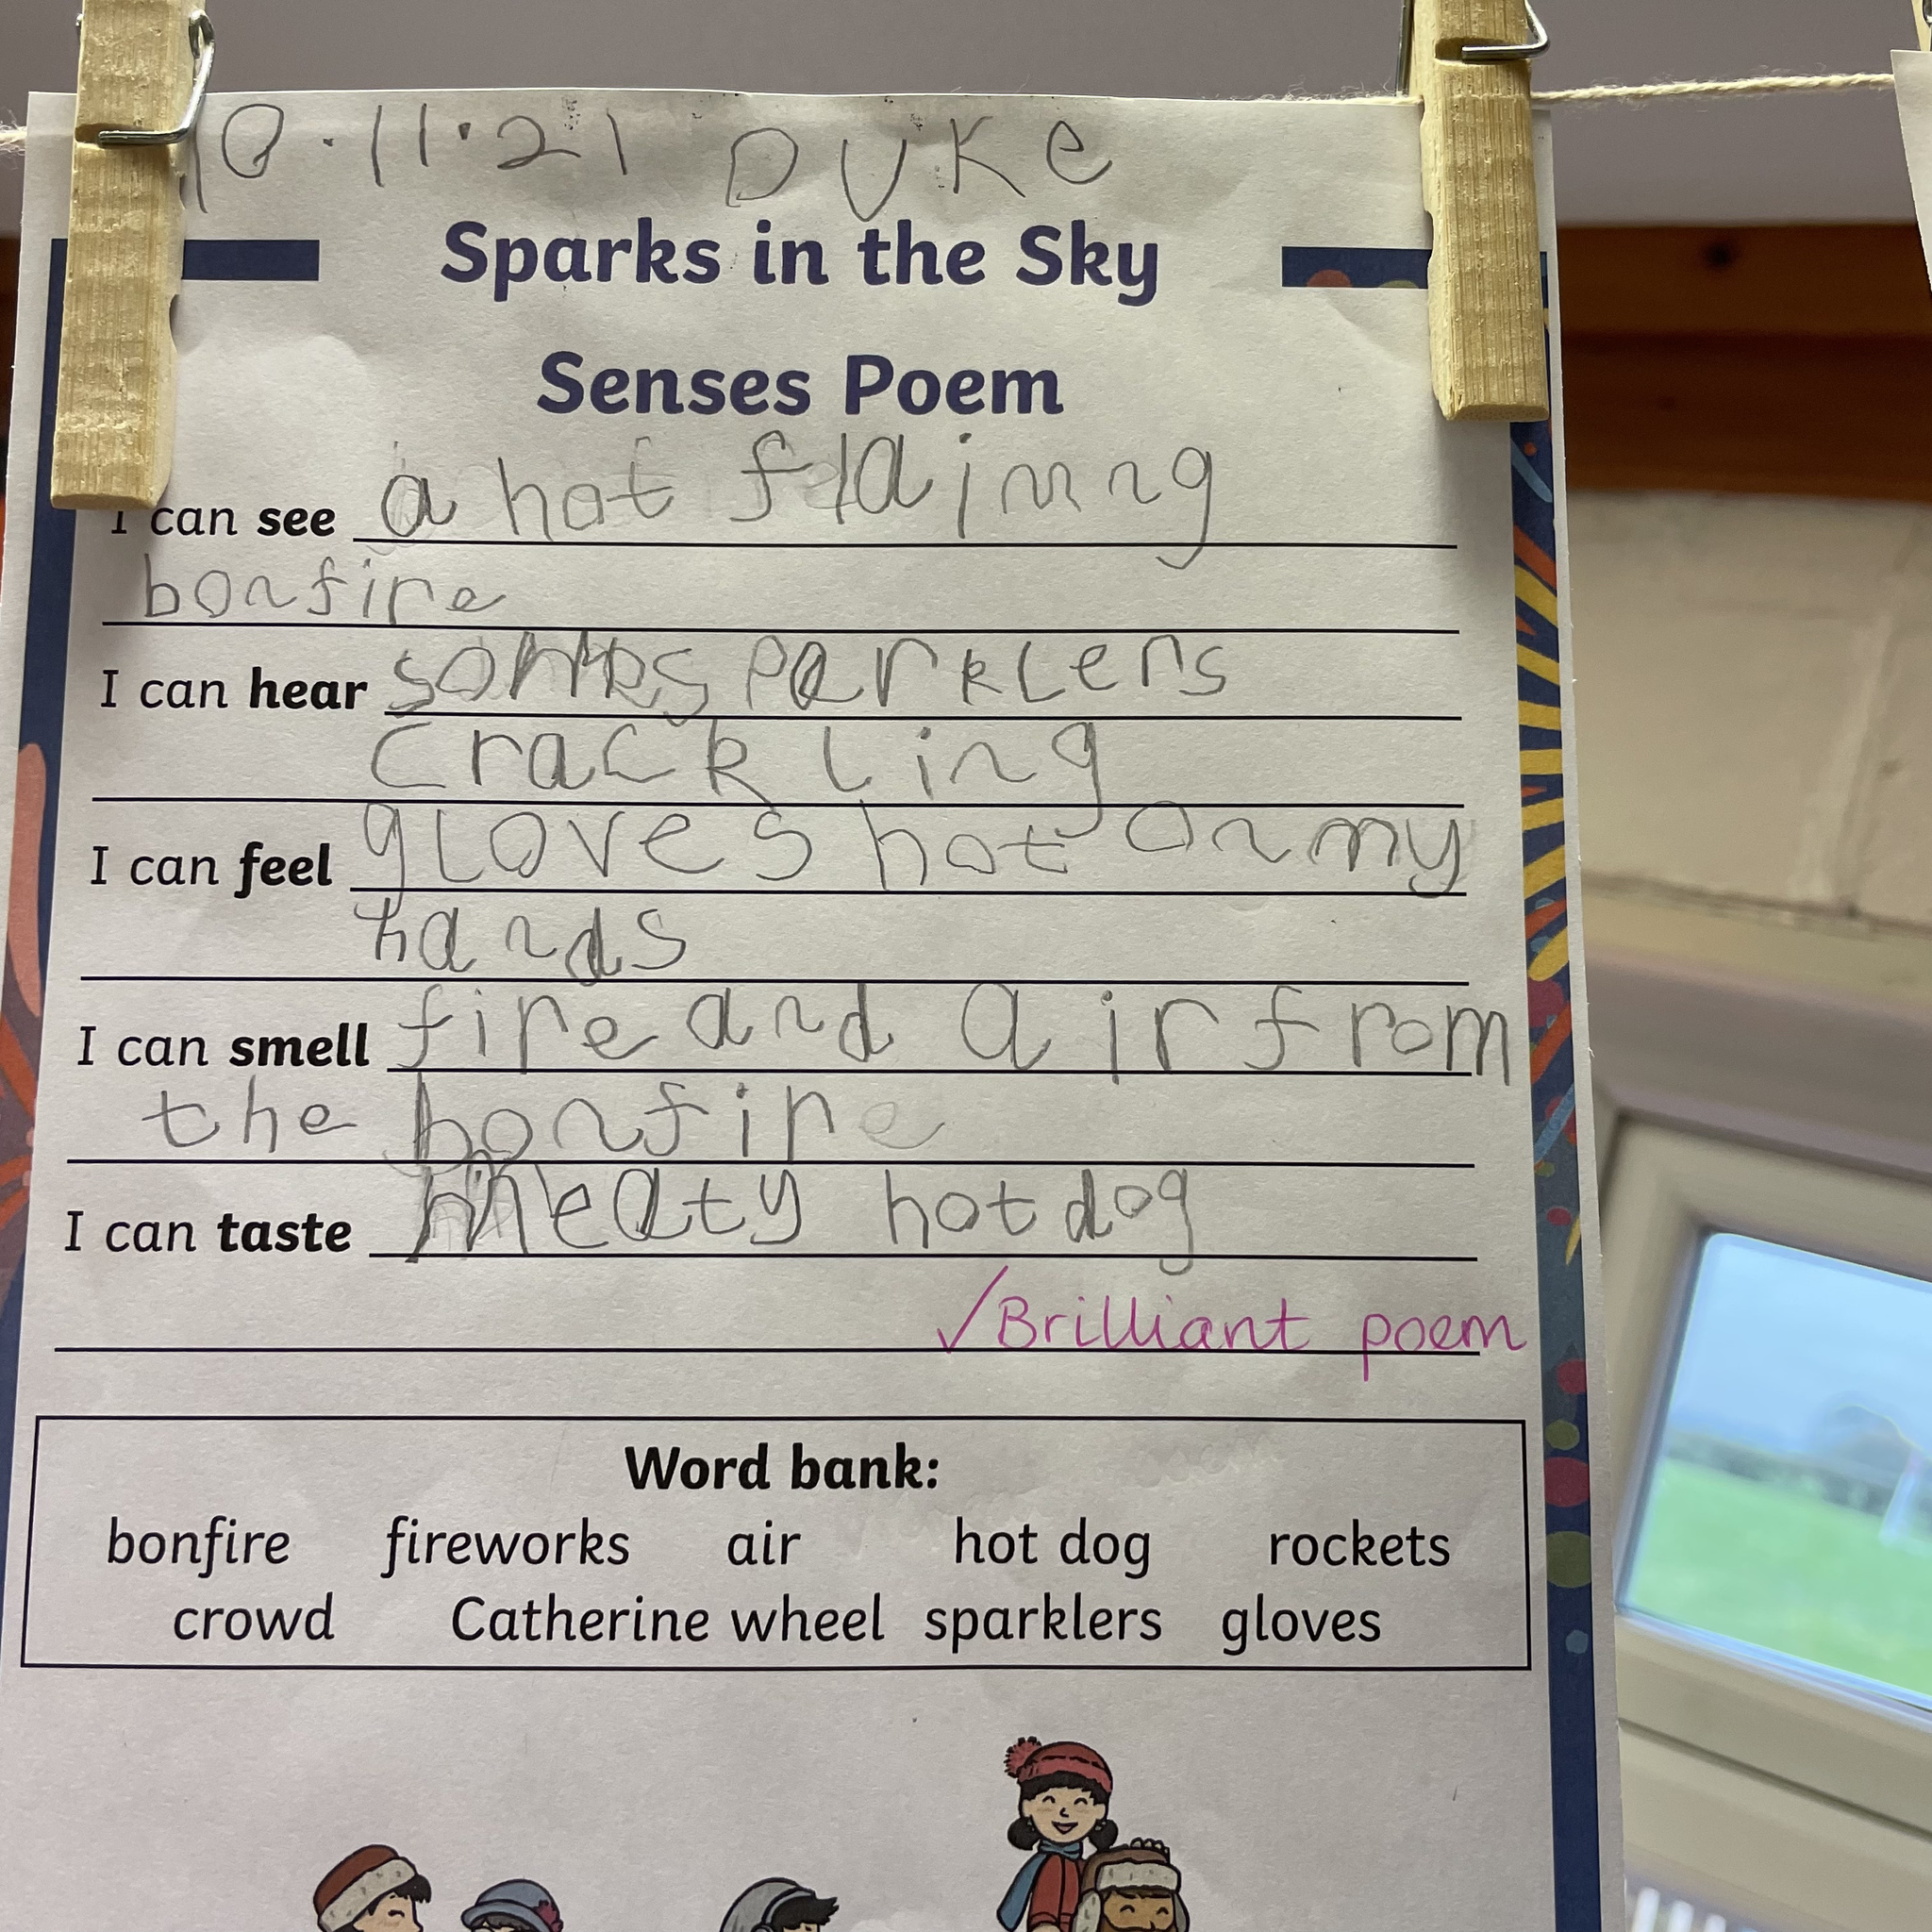 10.11.21 DUKe
Sparks in the Sky
Senses Poem
I can see a hot flaimng
bonfire
I can hear some sparklers
crackling
I can feel gloves hot on my
hands
I can smell fire and air from
the bonfire
I can taste meaty hot dog
✓Brilliant poem
Word bank:
bonfire fireworks air hot dog rockets
crowd Catherine wheel sparklers gloves